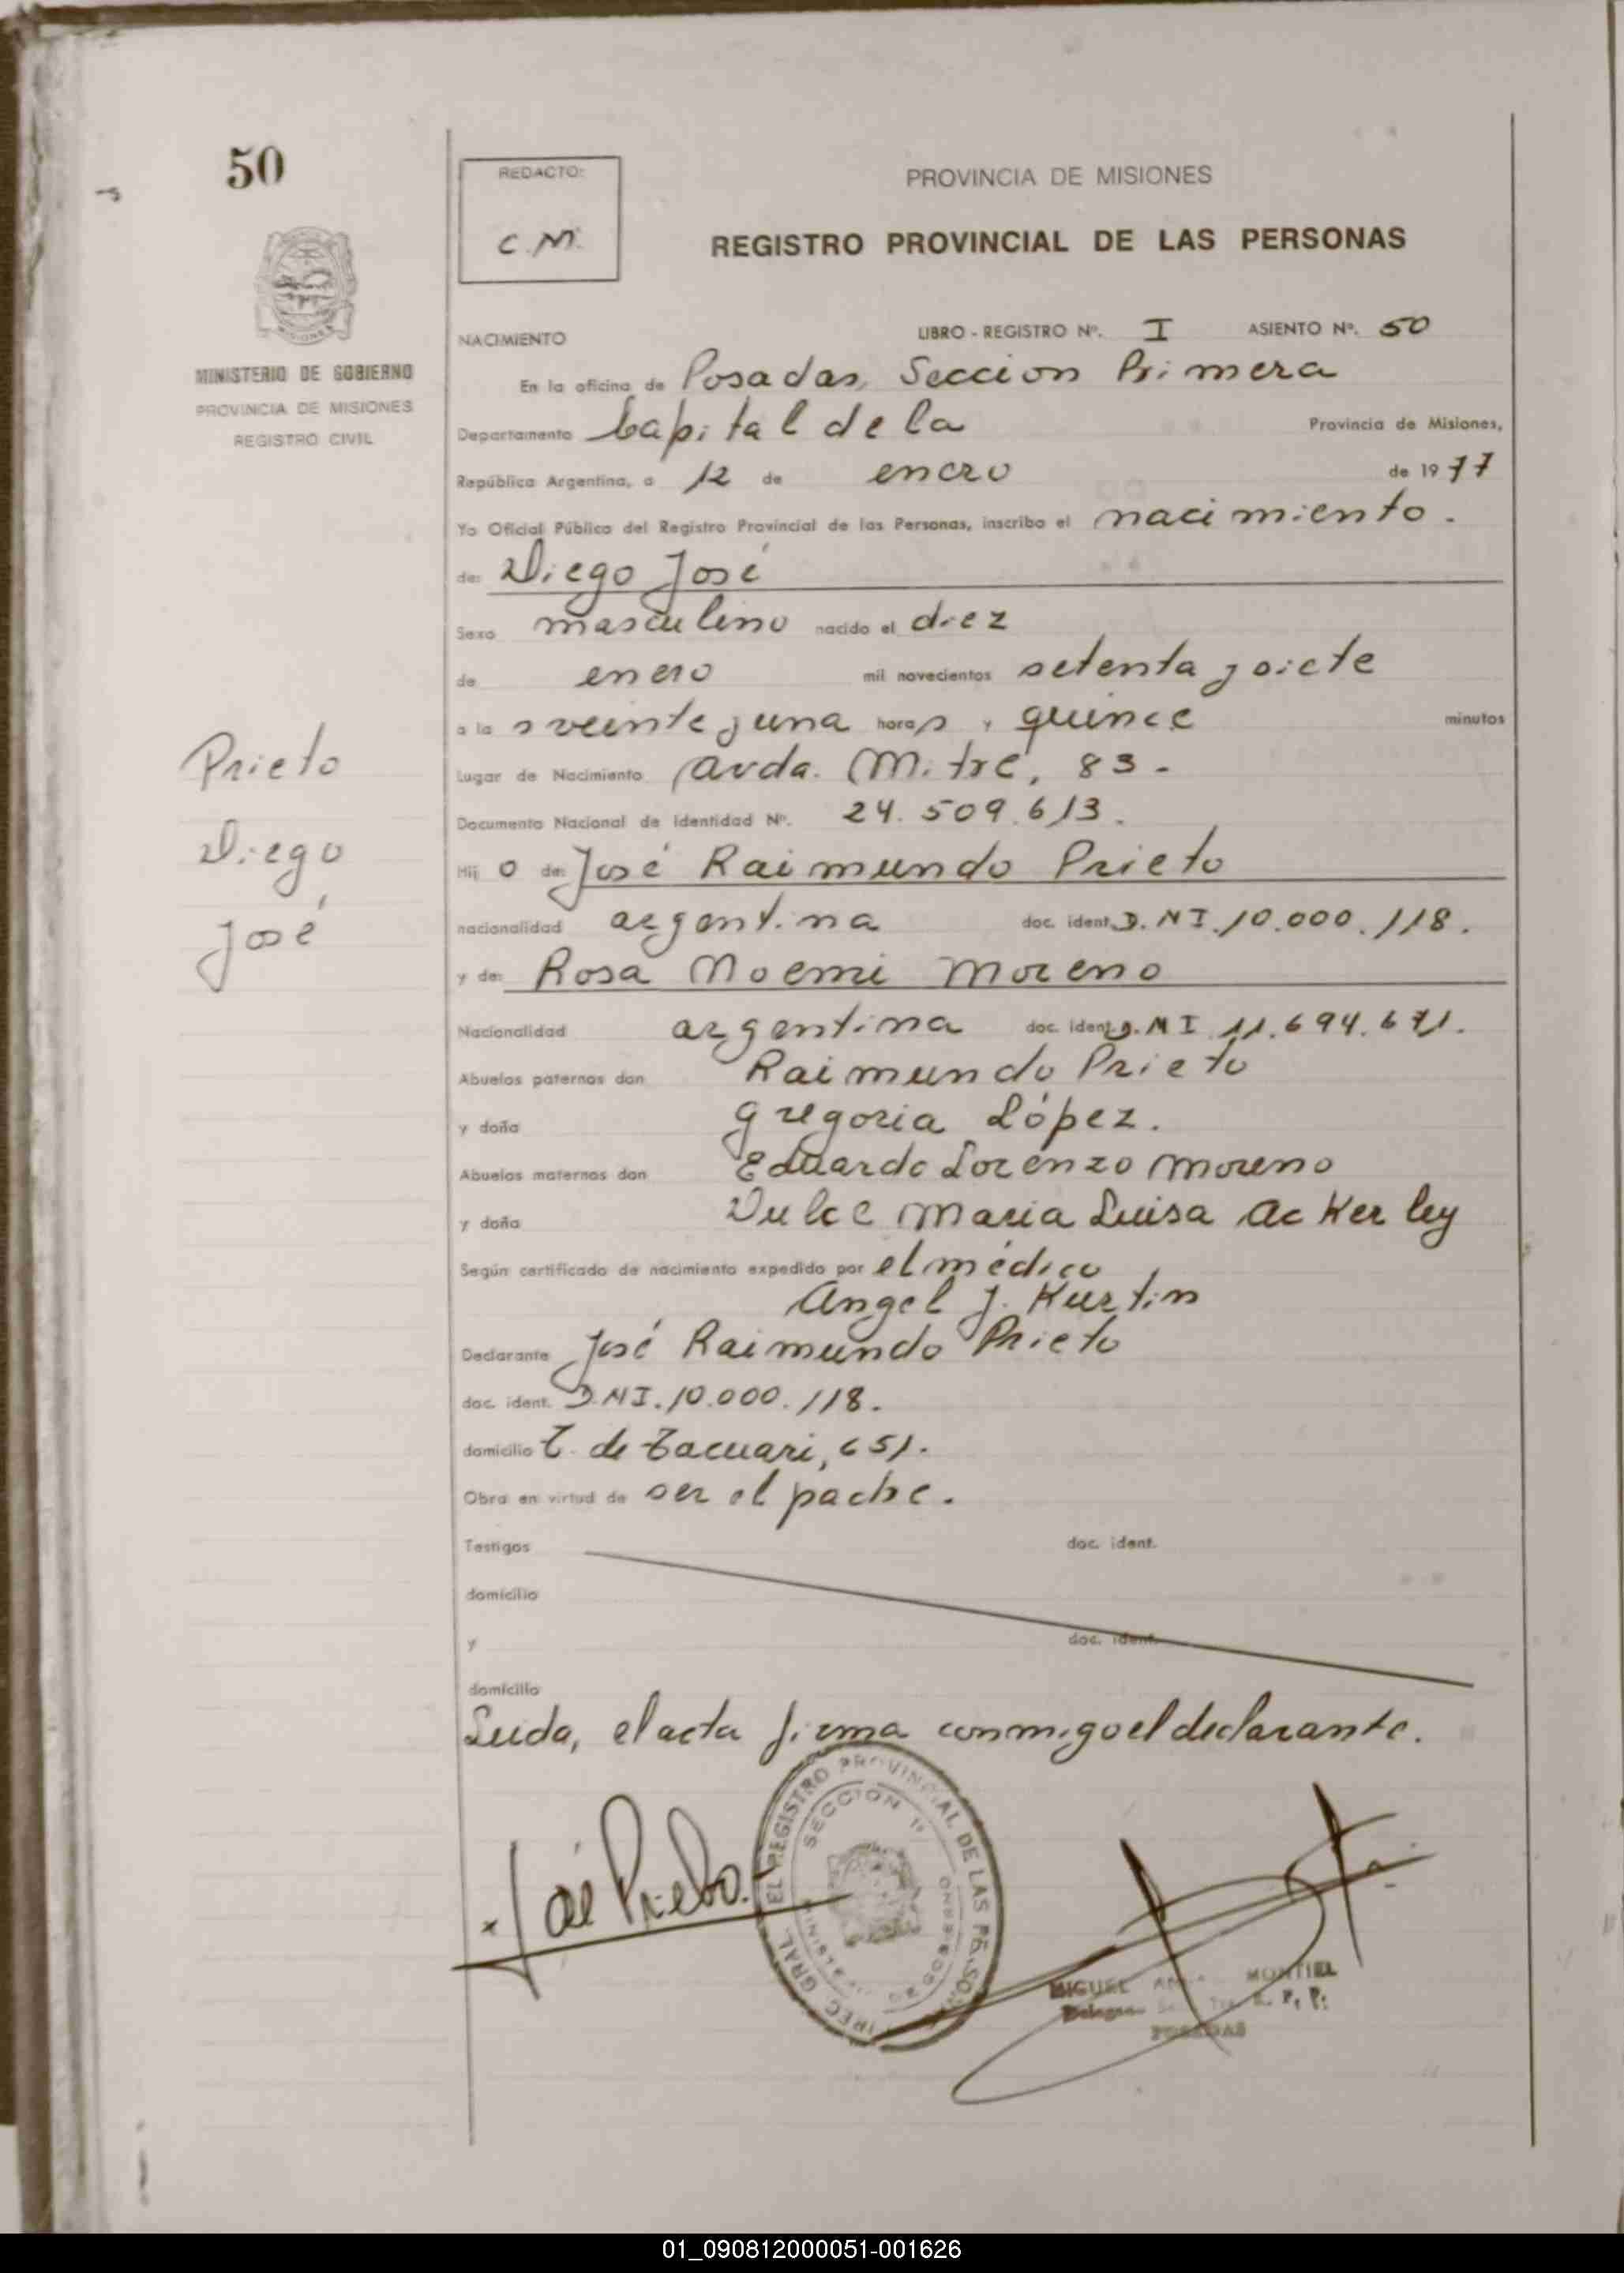 50
REDACTO:
C.M.
PROVINCIA DE MISIONES
REGISTRO PROVINCIAL DE LAS PERSONAS
MINISTERIO DE GOBIERNO
PROVINCIA DE MISIONES
REGISTRO CIVIL
NACIMIENTO LIBRO - REGISTRO Nº. I ASIENTO Nº. 50
En la oficina de Posadas, Seccion Primera
Departamento Capital de la Provincia de Misiones,
República Argentina, a 12 de enero de 1977
Yo Oficial Público del Registro Provincial de las Personas, inscribo el nacimiento.
de: Diego José
Sexo masculino nacido el diez
de enero mil novecientos setenta y siete
a la s veinte y una horas y quince minutos
Lugar de Nacimiento Avda. Mitre, 83.
Documento Nacional de Identidad Nº. 24.509.613.
Hij o de: José Raimundo Prieto
nacionalidad argentina doc. ident. D.NI.10.000.118.
y de: Rosa Noemi Moreno
Nacionalidad argentina doc. ident. D.NI 11.694.671.
Abuelos paternos don Raimundo Prieto
y doña Gregoria López.
Abuelos maternos don Eduardo Lorenzo Moreno
y doña Dulce Maria Luisa Ackerley
Según certificado de nacimiento expedido por el médico
Angel J. Kurtin
Declarante José Raimundo Prieto
doc. ident. D.NI.10.000.118.
domicilio T. de Tacuari, 651.
Obra en virtud de ser el padre.
Testigos doc. ident.
domicilio
y doc. ident.
domicilio
Leida, el acta firma conmigo el declarante.
Prieto
Diego
José
José Prieto.
REGISTRO PROVINCIAL DE LAS PERSONAS
SECCION 1ª
MIGUEL MONTIEL
R. P. P.
POSADAS
01_090812000051-001626